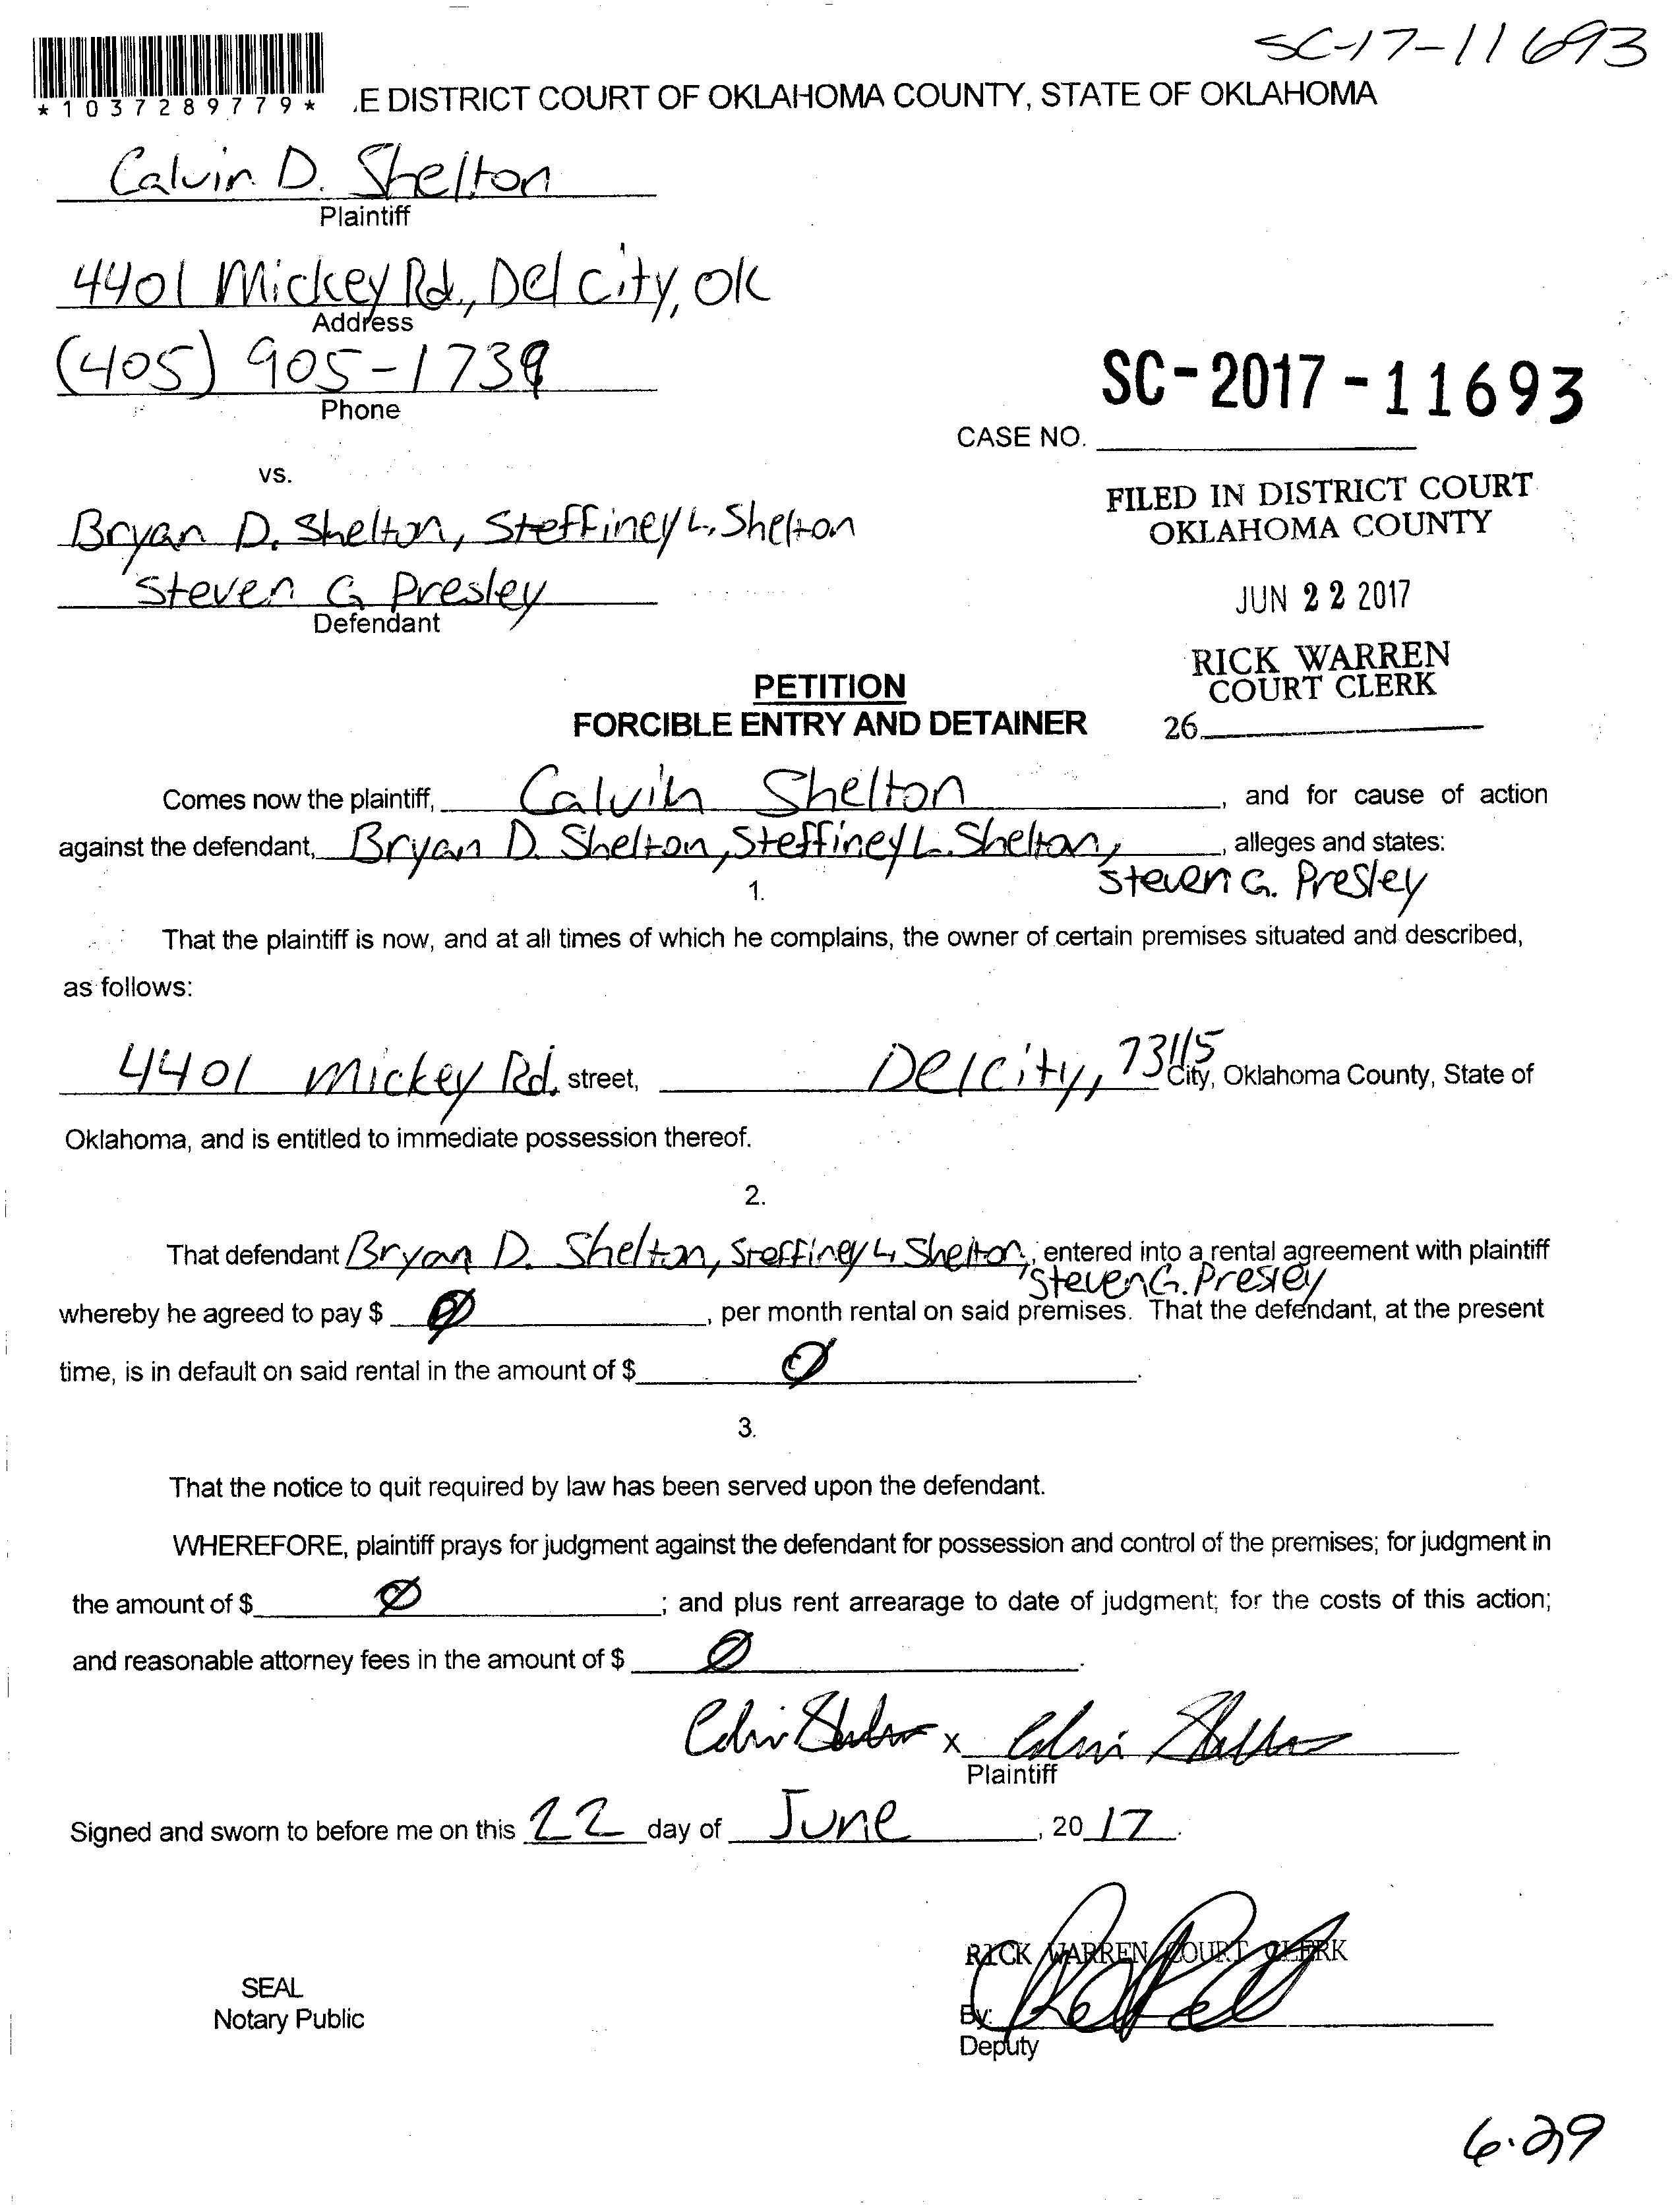 SC-17-11693
*1037289779*
.E DISTRICT COURT OF OKLAHOMA COUNTY, STATE OF OKLAHOMA
Calvin D. Shelton
Plaintiff
4401 Mickey Rd., Del City, OK
Address
(405) 905-1739
Phone
SC-2017-11693
CASE NO.
vs.
FILED IN DISTRICT COURT
OKLAHOMA COUNTY
Bryan D. Shelton, Steffiney L. Shelton
Steven G Presley
Defendant
JUN 22 2017
RICK WARREN
COURT CLERK
26
PETITION
FORCIBLE ENTRY AND DETAINER
Comes now the plaintiff, Calvin Shelton, and for cause of action
against the defendant, Bryan D. Shelton, Steffiney L. Shelton, , alleges and states:
Steven G. Presley
1.
That the plaintiff is now, and at all times of which he complains, the owner of certain premises situated and described,
as follows:
4401 Mickey Rd. street, Del City, 73115 City, Oklahoma County, State of
Oklahoma, and is entitled to immediate possession thereof.
2.
That defendant Bryan D. Shelton, Steffiney L. Shelton, entered into a rental agreement with plaintiff
Steven G. Presley
whereby he agreed to pay $ Ø, per month rental on said premises. That the defendant, at the present
time, is in default on said rental in the amount of $ Ø.
3.
That the notice to quit required by law has been served upon the defendant.
WHEREFORE, plaintiff prays for judgment against the defendant for possession and control of the premises; for judgment in
the amount of $ Ø; and plus rent arrearage to date of judgment; for the costs of this action;
and reasonable attorney fees in the amount of $ Ø.
Calvin Shelton x Calvin Shelton
Plaintiff
Signed and sworn to before me on this 22 day of June, 20 17.
RICK WARREN COURT CLERK
SEAL
Notary Public
By:
Deputy
6.29